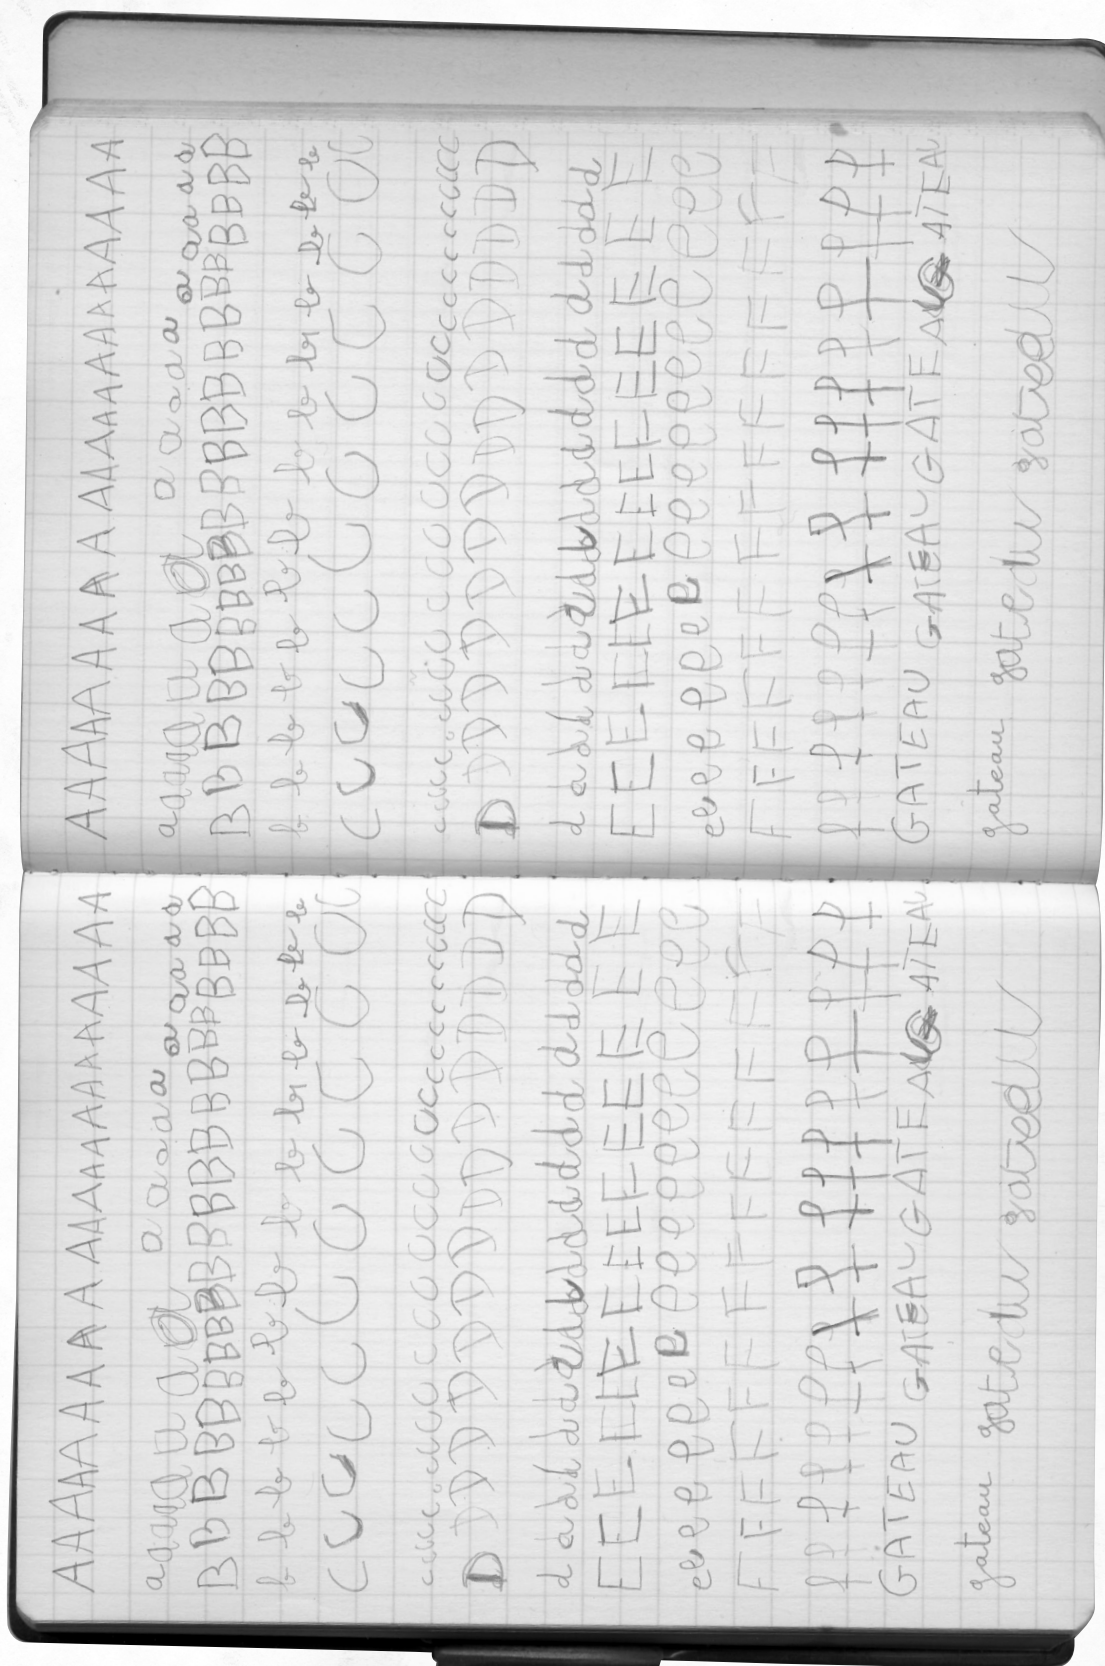 AAAAAAAAAAAAAAAAAAAA
aaaaauaa a a a a a a aa a a a
B B BBBBBBBBBBBBBBBBBB
b b b b b b b b b b b b b b b
C C C C C C C C C C C C C C
c c c c c c c c c c c c c c c c c c c c c c c
D D D D D D D D D D D D D D D D
d d d d d d d d d d d d d d d d d d d
E E E E E E E E E E E E E E E
e e e e e e e e e e e e e e e e e e
F F F F F F F F F F F F F F
f f f f f f f f f f f f f f
GATEAU GATEAU GATEAU GATEAU
gateau gateau gateau
AAAAAAAAAAAAAAAAAAAA
aaaaauaa a a a a a a aa a a a
B B BBBBBBBBBBBBBBBBBB
b b b b b b b b b b b b b b b
C C C C C C C C C C C C C C
c c c c c c c c c c c c c c c c c c c c c c c
D D D D D D D D D D D D D D D D
d d d d d d d d d d d d d d d d d d d
E E E E E E E E E E E E E E E
e e e e e e e e e e e e e e e e e e
F F F F F F F F F F F F F F
f f f f f f f f f f f f f f
GATEAU GATEAU GATEAU GATEAU
gateau gateau gateau